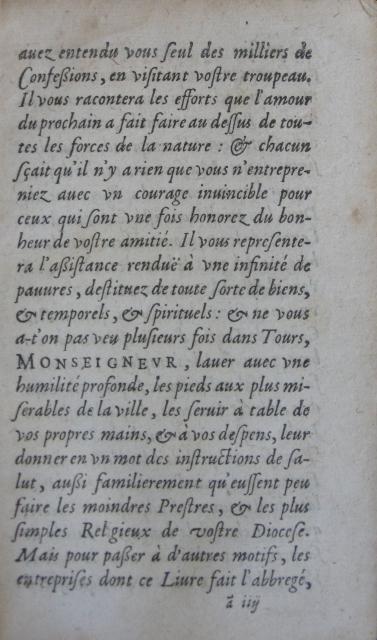 auez entendu vous ſeul des milliers de
Confeſsions, en viſitant voſtre troupeau.
Il vous racontera les efforts que l'amour
du prochain a fait faire au deſſus de tou-
tes les forces de la nature : & chacun
ſçait qu'il n'y a rien que vous n'entrepre-
niez auec vn courage inuincible pour
ceux qui ſont vne fois honorez du bon-
heur de voſtre amitié. Il vous repreſente-
ra l'aſsiſtance renduë à vne infinité de
pauures, deſtituez de toute ſorte de biens,
& temporels, & ſpirituels : & ne vous
a-t'on pas veu pluſieurs fois dans Tours,
MONSEIGNEVR, lauer auec vne
humilité profonde, les pieds aux plus mi-
ſerables de la ville, les ſeruir à table de
vos propres mains, & à vos deſpens, leur
donner en vn mot des inſtructions de ſa-
lut, auſsi familierement qu'euſſent peu
faire les moindres Preſtres, & les plus
ſimples Religieux de voſtre Dioceſe.
Mais pour paſſer à d'autres motifs, les
entrepriſes dont ce Liure fait l'abbregé,
ã iiij